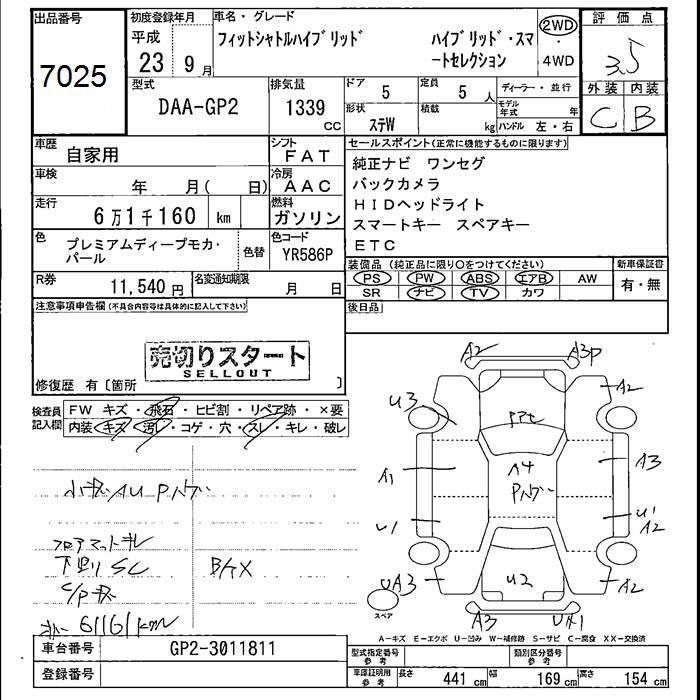 出品番号
7025
初度登録年月
平成
23 9 月
車名・グレード
フィットシャトルハイブリッド
ハイブリッド・スマ
ートセレクション
2WD
・
4WD
評価点
3.5
外装 内装
C B
型式
DAA-GP2
排気量
1339
CC
ドア
5
定員
5 人
形状
ステW
積載
kg
ディーラー・並行
モデル年式 年
ハンドル 左・右
車歴
自家用
シフト
FAT
車検
年 月( 日)
冷房
AAC
走行
6万1千160 km
燃料
ガソリン
色
プレミアムディープモカ・
パール
色替
色コード
YR586P
R券
11,540 円
名変通知期限
月 日
セールスポイント(正常に機能するものに限ります)
純正ナビ ワンセグ
バックカメラ
HIDヘッドライト
スマートキー スペアキー
ETC
装備品(純正品に限り○をつけてください)
PS PW ABS エアB AW
SR ナビ TV カワ
新車保証書
有・無
後日品
注意事項申告欄(不具合内容等は具体的に記入して下さい)
売切りスタート
SELLOUT
修復歴 有〔箇所 〕
検査員
記入欄
FW キズ・飛石・ヒビ割・リペア跡・×要
内装・キズ・汚レ・コゲ・穴・スレ・キレ・破レ
小キズ AU Pハゲ
フロアマットキレ
下廻りSC
61161km
A2
A3P
U3
A2
A1
A4
Pハゲ
A3
U1
U1
A2
U2
UA3
A2
スペア
A3
A-キズ E-エクボ U-凹み W-補修跡 S-サビ C-腐食 XX-交換済
車台番号
GP2-3011811
登録番号
型式指定番号
参考
類別区分番号
参考
車庫証明用
参考
長さ 441 cm 幅 169 cm 高さ 154 cm